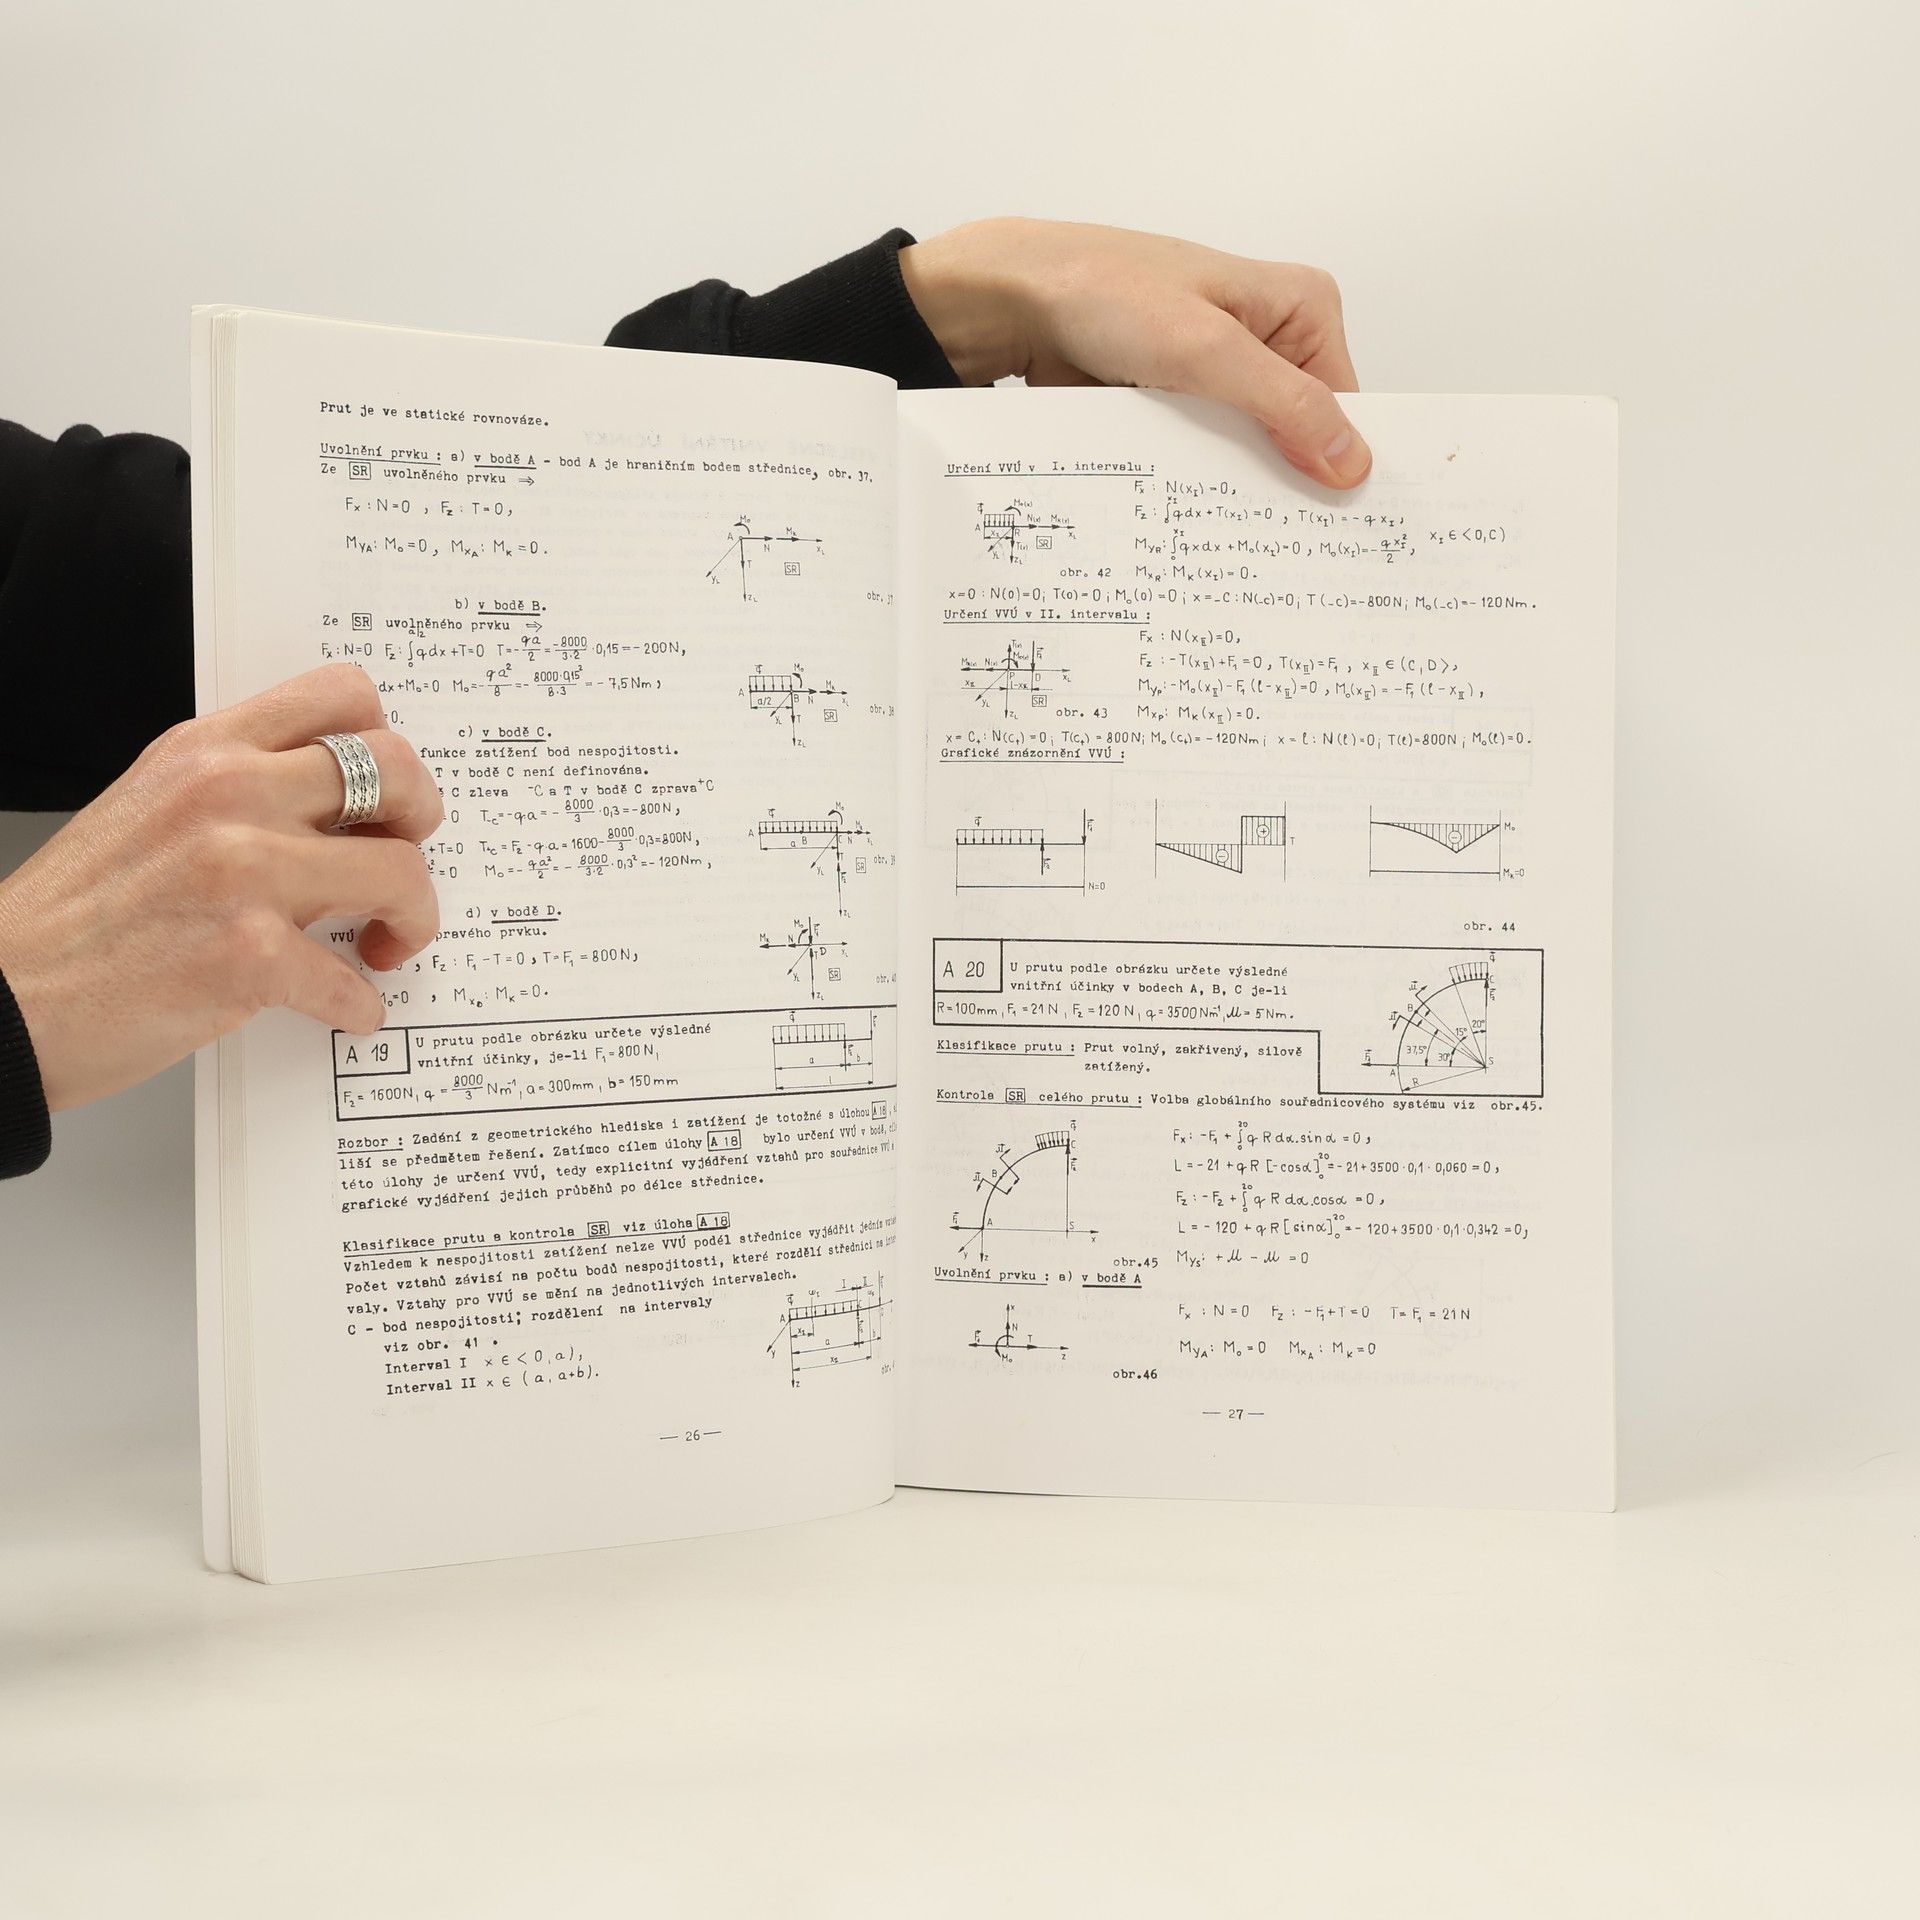 Prut je ve statické rovnováze.
Uvolnění prvku : a) v bodě A - bod A je hraničním bodem střednice, obr. 37.
Ze SR uvolněného prvku ⇒
Fx : N=0 , Fz : T=0,
MyA: Mo=0 , MxA: MK=0.
b) v bodě B.
Ze SR uvolněného prvku ⇒
Fx: N=0 Fz: ∫qdx+T=0 T=-qa/2=-8000/3·2·0,15=-200N,
dx+Mo=0 Mo=-qa²/8=-8000·0,15²/8·3=-7,5Nm,
=0.
c) v bodě C.
funkce zatížení bod nespojitosti.
T v bodě C není definována.
C zleva ⁻C a T v bodě C zprava⁺C
=0 T-c=-qa=-8000/3·0,3=-800N,
+T=0 T+c=F2-q·a=1600-8000/3·0,3=800N,
=0 Mo=-qa²/2=-8000/3·2·0,3²=-120Nm,
d) v bodě D.
VVÚ pravého prvku.
, Fz : F1-T=0, T=F1=800N,
Mo=0 , MxD: MK=0.
A 19
U prutu podle obrázku určete výsledné
vnitřní účinky, je-li F1=800N,
F2=1600N, q=8000/3 Nm⁻¹, a=300mm, b=150mm
Rozbor : Zadání z geometrického hlediska i zatížení je totožné s úlohou A 18,
liší se předmětem řešení. Zatímco cílem úlohy A 18 bylo určení VVÚ v bodě,
této úlohy je určení VVÚ, tedy explicitní vyjádření vztahů pro souřadnice VVÚ
grafické vyjádření jejich průběhů po délce střednice.
Klasifikace prutu a kontrola SR viz úloha A 18
Vzhledem k nespojitosti zatížení nelze VVÚ podél střednice vyjádřit jedním
Počet vztahů závisí na počtu bodů nespojitosti, které rozdělí střednici na
valy. Vztahy pro VVÚ se mění na jednotlivých intervalech.
C - bod nespojitosti; rozdělení na intervaly
viz obr. 41 .
Interval I x ∈ <0,a),
Interval II x ∈ (a, a+b).
— 26 —
Určení VVÚ v I. intervalu :
Fx : N(xI)=0,
Fz : ∫qdx+T(xI)=0 , T(xI)=-qxI,
MyR: ∫qxdx+Mo(xI)=0 , Mo(xI)=-qxI²/2, xI∈<0,C)
obr. 42 MxR: MK(xI)=0.
x=0 : N(0)=0; T(0)=0; Mo(0)=0; x=-C : N(-c)=0; T(-c)=-800N; Mo(-c)=-120Nm.
Určení VVÚ v II. intervalu :
Fx : N(xII)=0,
Fz : -T(xII)+F1=0, T(xII)=F1, xII∈(C,D>,
MyP: -Mo(xII)-F1(ℓ-xII)=0, Mo(xII)=-F1(ℓ-xII),
obr. 43 MxP: MK(xII)=0.
x=C+: N(C+)=0; T(C+)=800N; Mo(C+)=-120Nm; x=ℓ: N(ℓ)=0; T(ℓ)=800N; Mo(ℓ)=0.
Grafické znázornění VVÚ :
N=0
T
Mo
MK=0
obr. 44
A 20
U prutu podle obrázku určete výsledné
vnitřní účinky v bodech A, B, C je-li
R=100mm, F1=21N, F2=120N, q=3500Nm⁻¹, M=5Nm.
Klasifikace prutu : Prut volný, zakřivený, silově
zatížený.
Kontrola SR celého prutu : Volba globálního souřadnicového systému viz obr.45.
Fx: -F1+∫qRdα.sinα=0,
L=-21+qR[-cosα]=-21+3500·0,1·0,060=0,
Fz: -F2+∫qRdα.cosα=0,
L=-120+qR[sinα]=-120+3500·0,1·0,342=0,
obr.45 Mys: +M-M=0
Uvolnění prvku : a) v bodě A
Fx : N=0 Fz : -F1+T=0 T=F1=21N
MyA: Mo=0 MxA: MK=0
obr.46
— 27 —